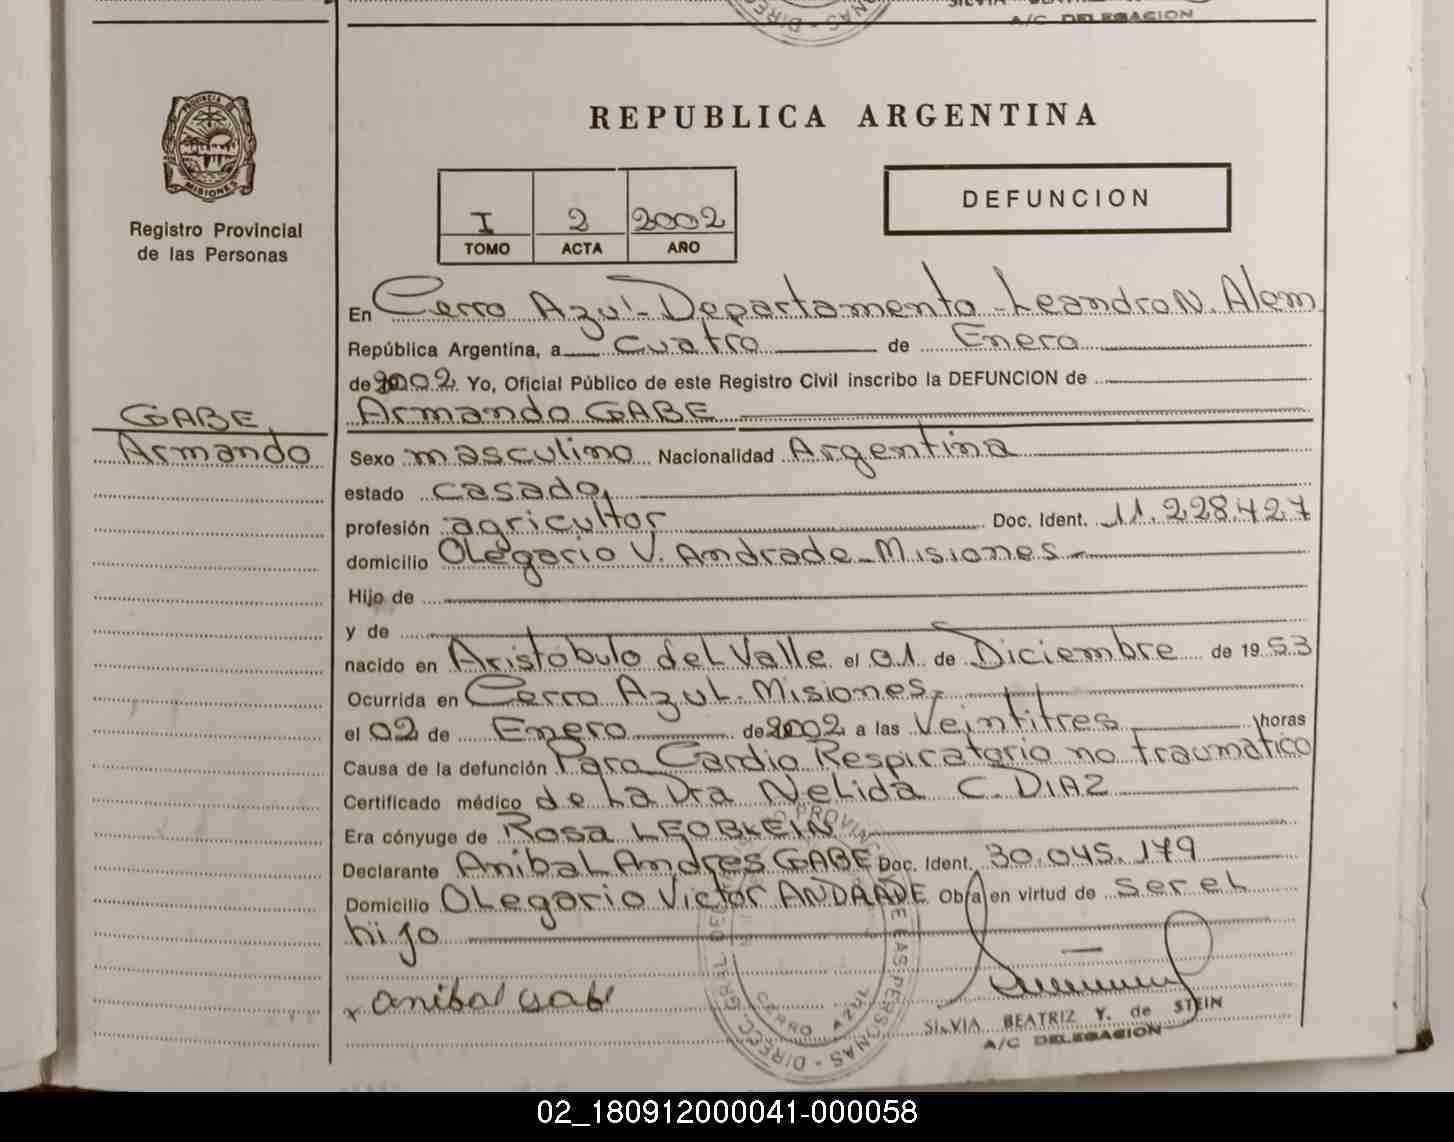 SILVIA
A/C DELEGACION
PROVINCIA DE
MISIONES
Registro Provincial
de las Personas
REPUBLICA ARGENTINA
I 2 2002
TOMO ACTA AÑO
DEFUNCION
En Cerro Azul-Departamento-Leandro N. Alem
República Argentina, a cuatro de Enero
de 2002. Yo, Oficial Público de este Registro Civil inscribo la DEFUNCION de
Armando GABE
GABE
Armando
Sexo masculino Nacionalidad Argentina
estado casado,
profesión agricultor Doc. Ident. 11.228.427
domicilio Olegario V. Andrade-Misiones-
Hijo de
y de
nacido en Aristobulo del Valle el 01 de Diciembre de 1953
Ocurrida en Cerro Azul-Misiones,-
el 02 de Enero de 2002 a las Veintitres horas
Causa de la defunción Paro Cardio Respiratorio no traumatico
Certificado médico de La Dra Nelida C. DIAZ
Era cónyuge de Rosa LEOBKEIN
Declarante Anibal Andres GABE Doc. Ident. 30.045.179
Domicilio Olegario Victor ANDRADE Obra en virtud de ser el
hijo
x anibal gabe
SILVIA BEATRIZ Y. de STEIN
A/C DELEGACION
CERRO AZUL
02_180912000041-000058